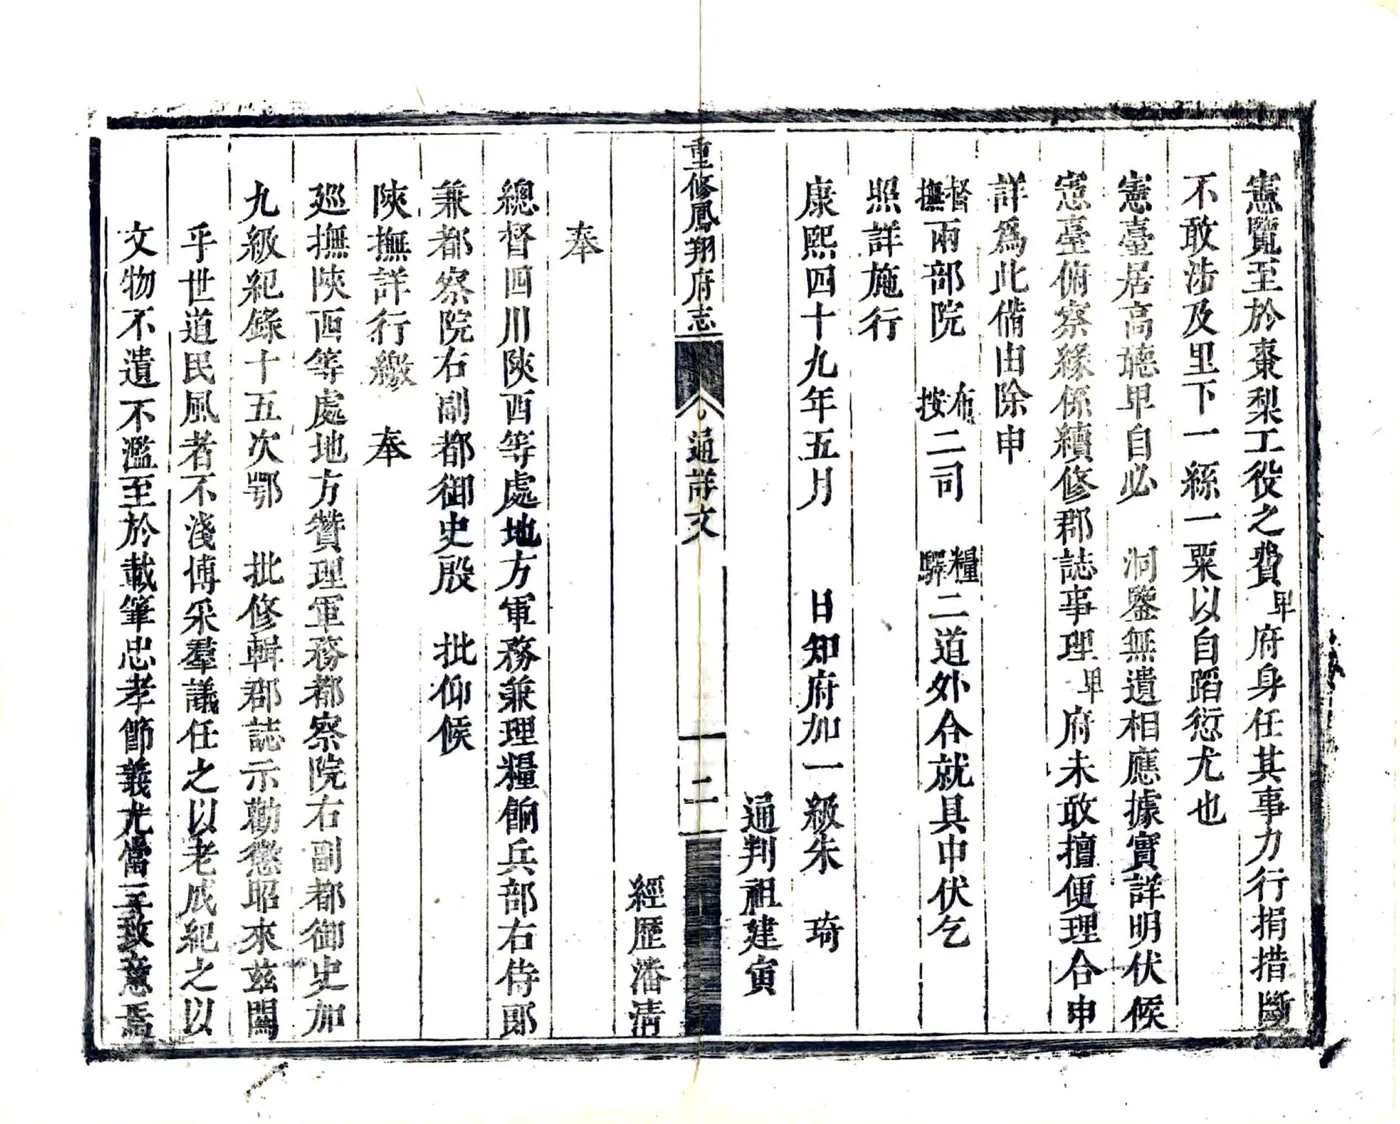 憲覽至於棗梨工役之費卑府身任其事力行捐措斷
不敢涉及里下一絲一粟以自蹈愆尤也
憲臺居高聽卑自必　洞鑒無遺相應據實詳明伏候
憲臺俯察緣係續修郡誌事理卑府未敢擅便理合申
詳爲此備由除申
督撫兩部院　布按二司　糧驛二道外合就具申伏乞
照詳施行
康熙四十九年五月　　日知府加一級朱　琦
通判祖建寅
重修鳳翔府志　通詳文　二
經歷潘清
奉
總督四川陝西等處地方軍務兼理糧餉兵部右侍郎
兼都察院右副都御史殷　批仰候
陝撫詳行繳　奉
巡撫陝西等處地方贊理軍務都察院右副都御史加
九級紀錄十五次鄂　批修輯郡誌示勸懲昭來茲關
乎世道民風者不淺博采羣議任之以老成紀之以
文物不遺不濫至於載筆忠孝節義尤當三致意焉